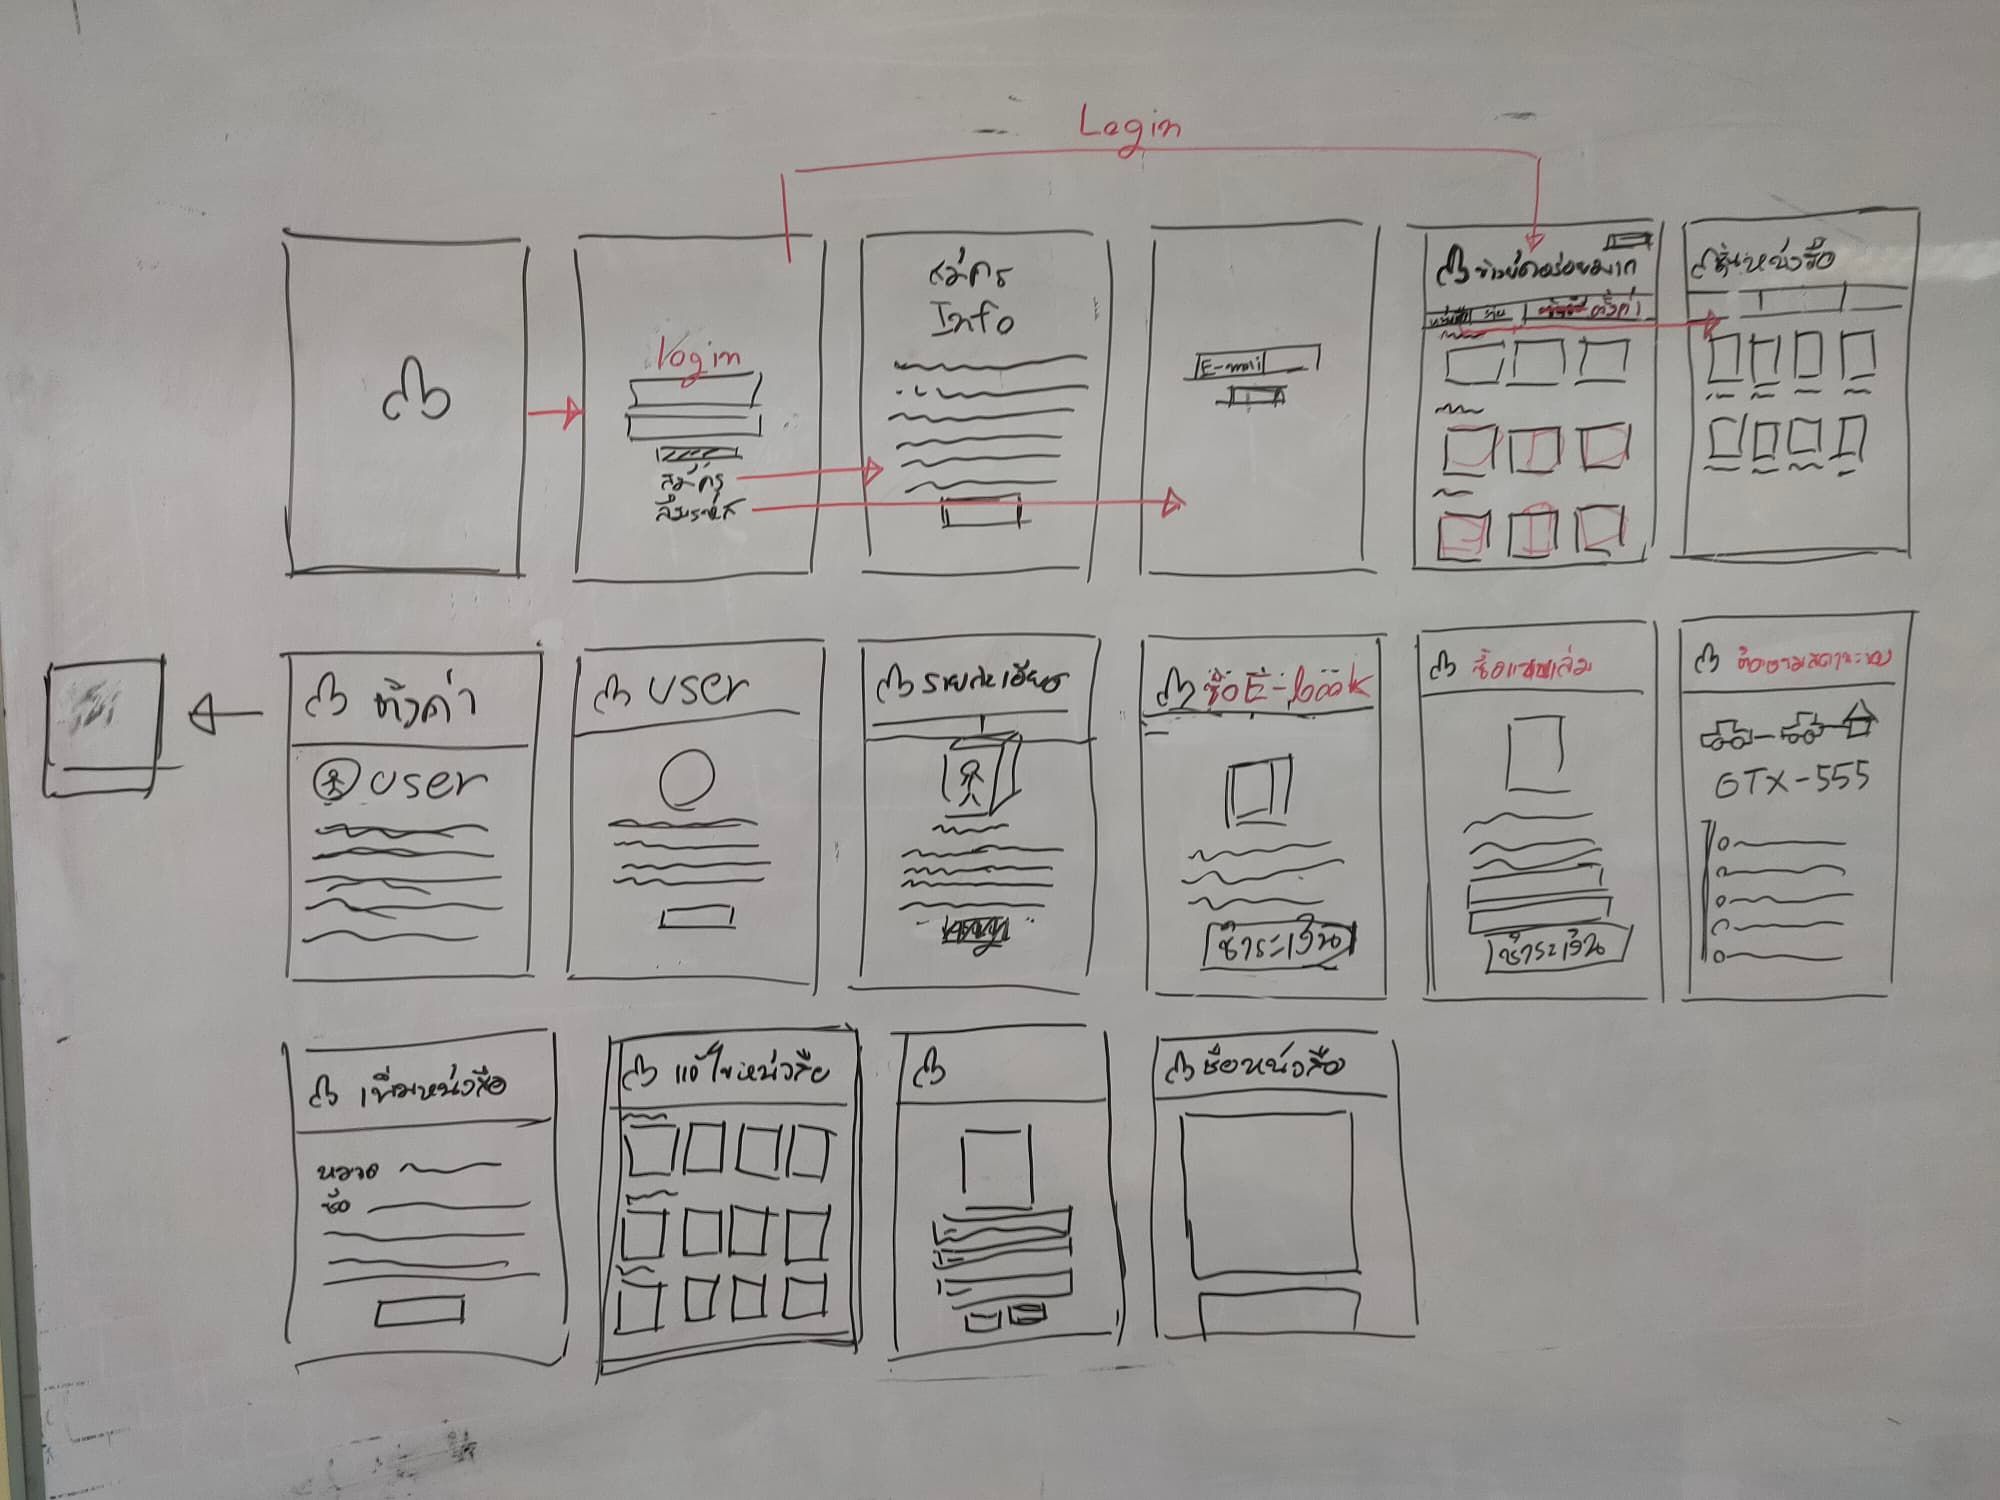 Login
login
สมัคร
ลืมรหัส
สมัคร
Info
E-mail
ข้าวมัดอร่อยมาก
ตั้งค่า
ชั้นหนังสือ
ตั้งค่า
user
user
รายละเอียด
ซื้อ E-book
ชำระเงิน
ซื้อแบบเล่ม
ชำระเงิน
ติดตามสถานะของ
GTX-555
เพิ่มหนังสือ
หมวด
ชื่อ
แก้ไขหนังสือ
ชื่อหนังสือ